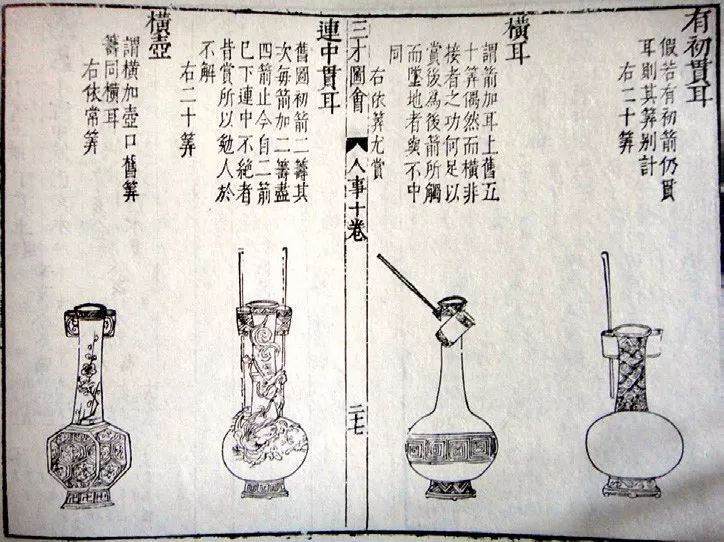 有初貫耳
假若有初箭仍貫
耳則其筭別計
右二十筭
橫耳
謂箭加耳上舊五
十筭偶然而橫非
接者之功何足以
賞後為後箭所觸
而墜地者與不中
同
右依筭尤賞
三才圖會
人事十卷
二十七
連中貫耳
舊圖初箭二籌其
次每箭加二籌盡
四箭止今自二箭
已下連中不絕者
昔賞所以勉人於
不解
右二十筭
橫壺
謂橫加壺口舊筭
籌同橫耳
右依常筭